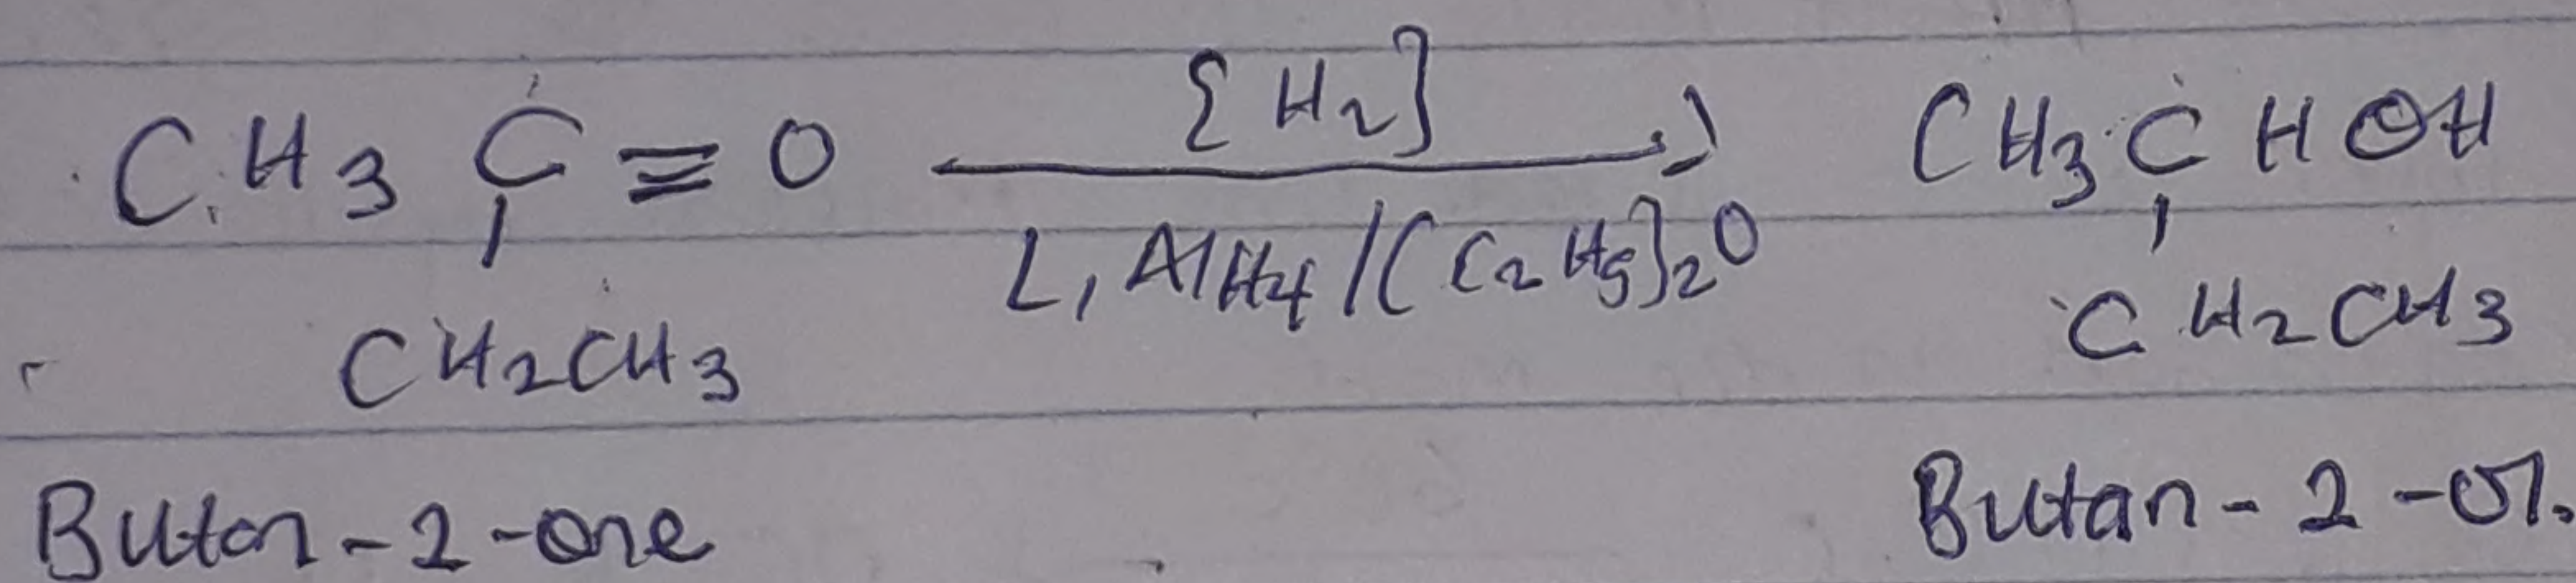 CH3 C ≡ O {H2] → CH3 C H OH
LiAlH4 / (C2H5)2O
CH2CH3 CH2CH3
Butan-2-one Butan-2-ol.